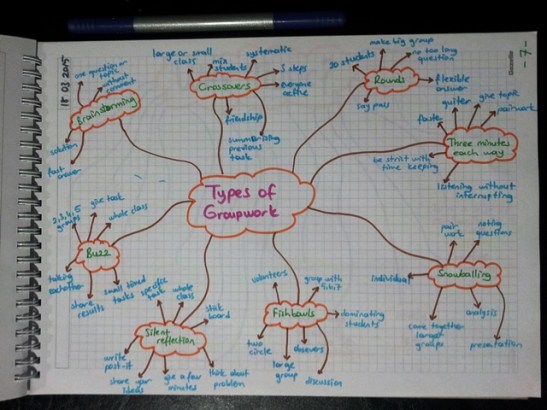 18 03 2015
- 7 -
Types of
Groupwork
Brainstorming
use question or
topic
without
comment
solution
fast
answer
Crossovers
large or small
class
mix
students
systematic
3 steps
everyone
active
friendship
summarising
previous
task
Rounds
20 students
make big group
no too long
question
flexible
answer
say pass
Three minutes
each way
quiter
give topic
pairwork
faste
be strict with
time keeping
listening without
interrupting
Snowballing
pair
work
noting
questions
individual
come together
larger
groups
analysis
presentation
Fishbowls
volunteers
group with
dominating
students
two
circle
large
group
obsevers
discussion
Silent
reflection
specific
task
whole
class
stick
board
write
post-it
share your
ideas
give a few
minutes
think about
problem
Buzz
2,3,4,5
groups
give task
whole class
talking
eachother
share
results
small timed
tasks